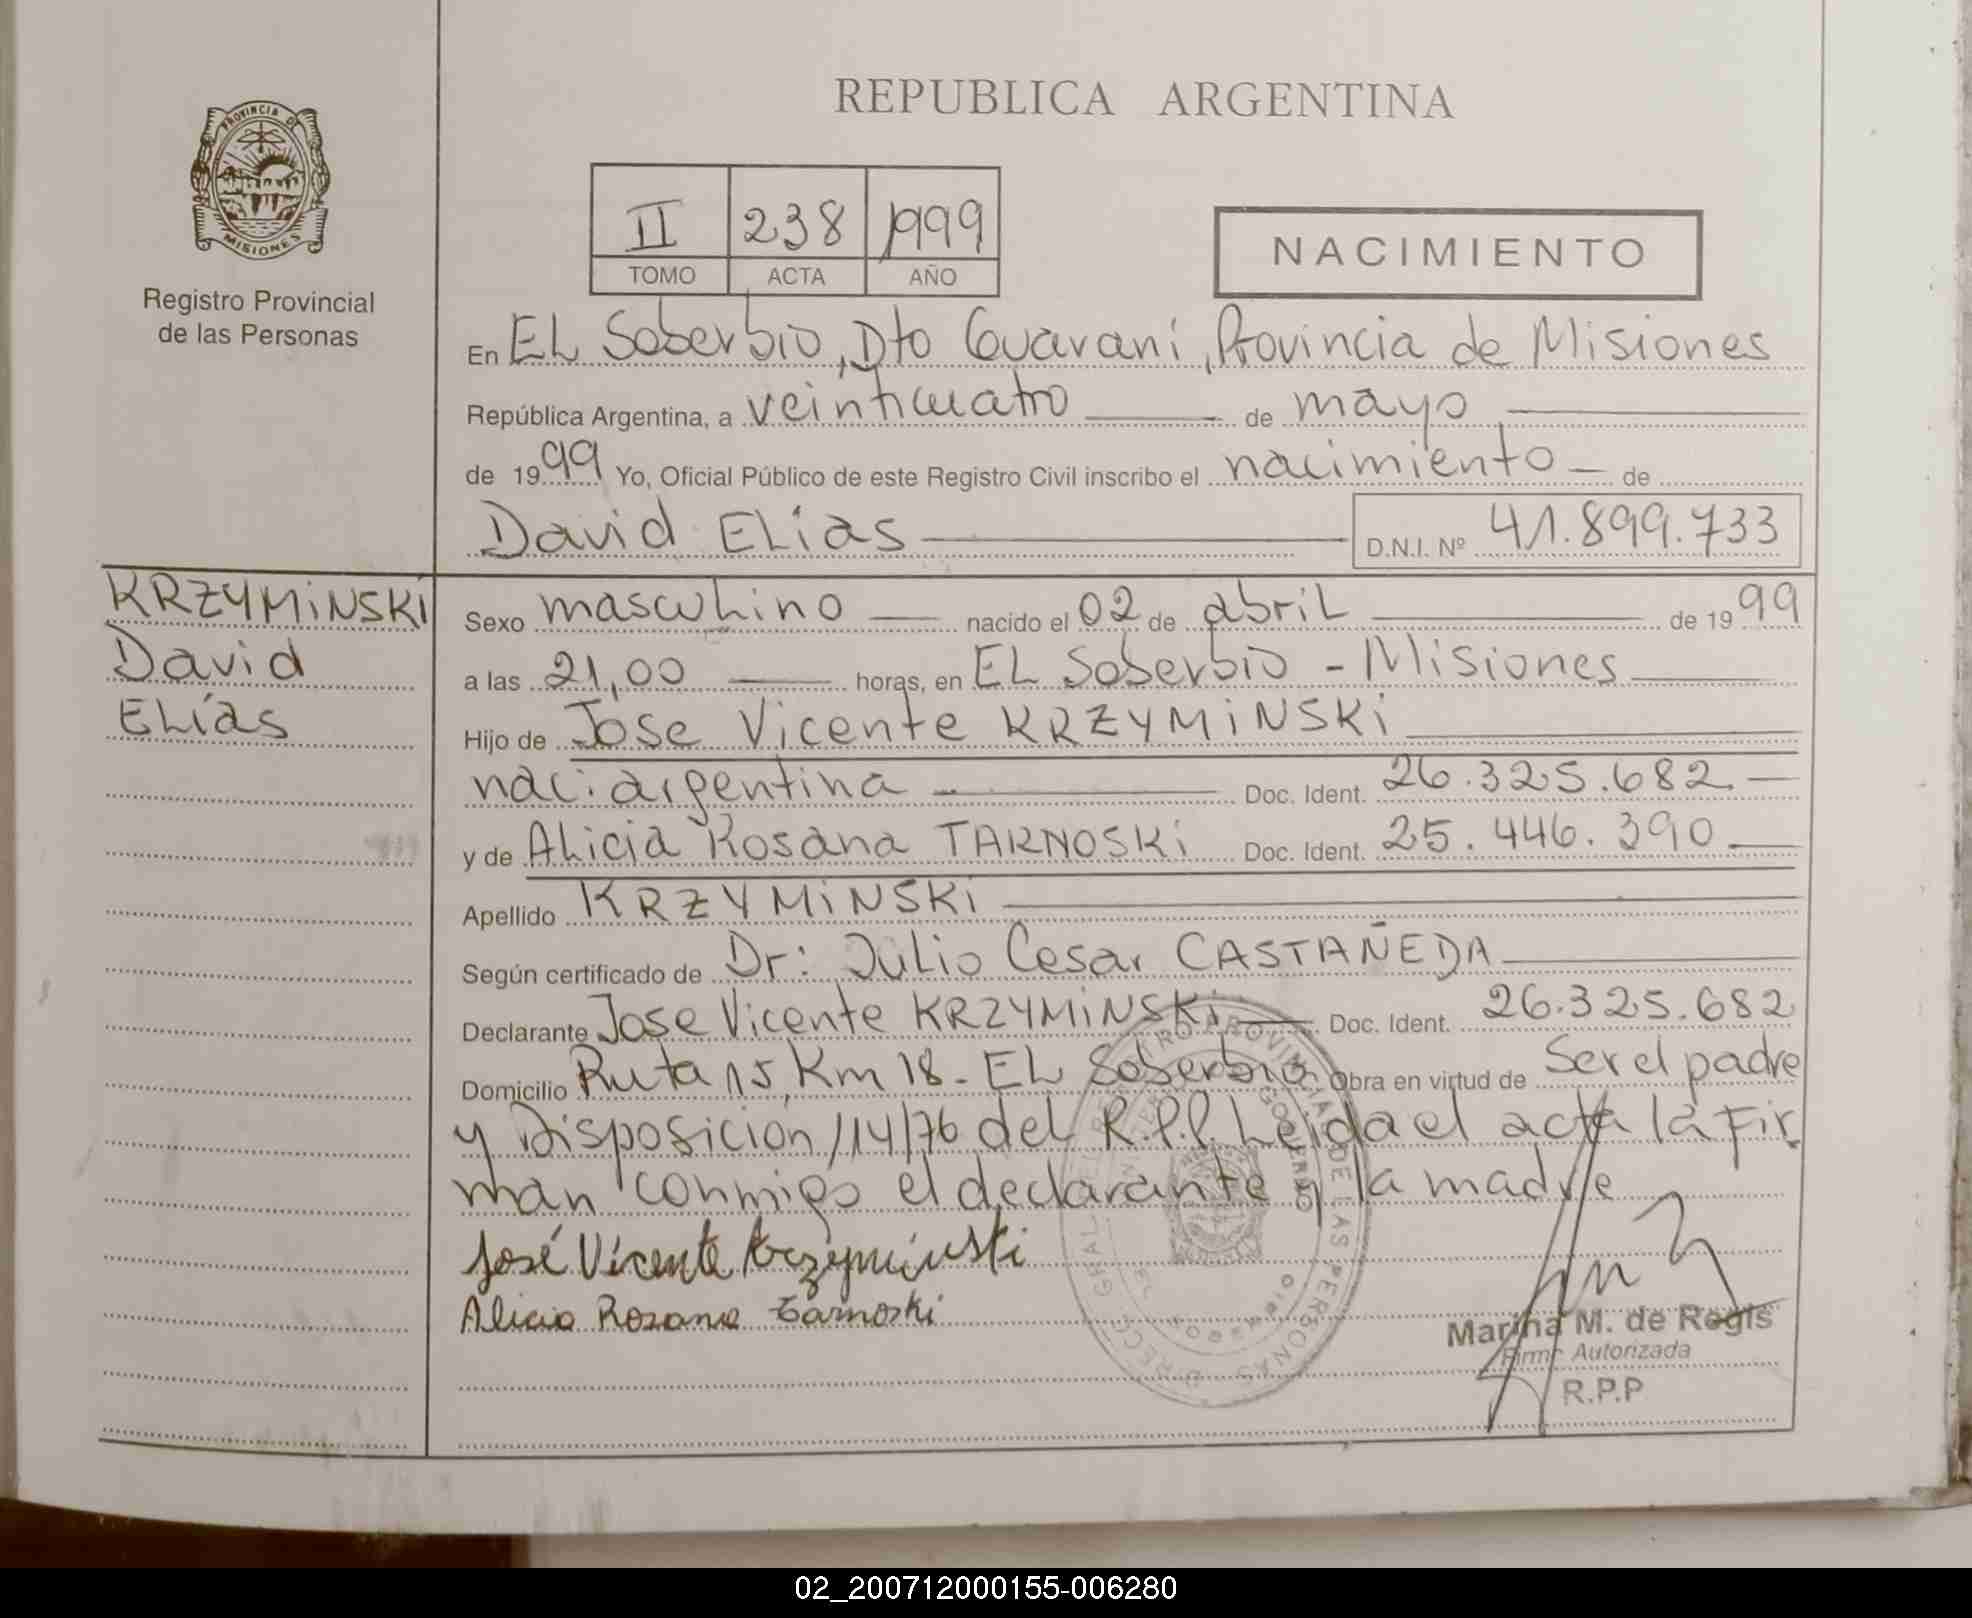 PROVINCIA DE
MISIONES
Registro Provincial
de las Personas
REPUBLICA ARGENTINA
II 238 1999
TOMO ACTA AÑO
NACIMIENTO
En EL Soberbio, Dto Guaraní, Provincia de Misiones
República Argentina, a veinticuatro de mayo
de 1999 Yo, Oficial Público de este Registro Civil inscribo el nacimiento de
David ELías D.N.I. Nº 41.899.733
KRZYMiNSKi
David
ELías
Sexo masculino nacido el 02 de abriL de 1999
a las 21,00 horas, en EL Soberbio - Misiones
Hijo de Jose Vicente KRZYMiNSKi
naci. argentina Doc. Ident. 26.325.682
y de Alicia Rosana TARNOSKi Doc. Ident. 25.446.390
Apellido KRZYMiNSKi
Según certificado de Dr: Julio Cesar CASTAÑEDA
Declarante Jose Vicente KRZYMiNSKi Doc. Ident. 26.325.682
Domicilio Ruta 15, Km 18 - EL Soberbio Obra en virtud de Ser el padre
y Disposición /14/76 del R.P.P. Leida el acta la Fir
man conmigo el declarante y la madre
José Vicente Krzyminski
Alicia Rosana Tarnoski
Marina M. de Regis
Firma Autorizada
R.P.P
02_200712000155-006280